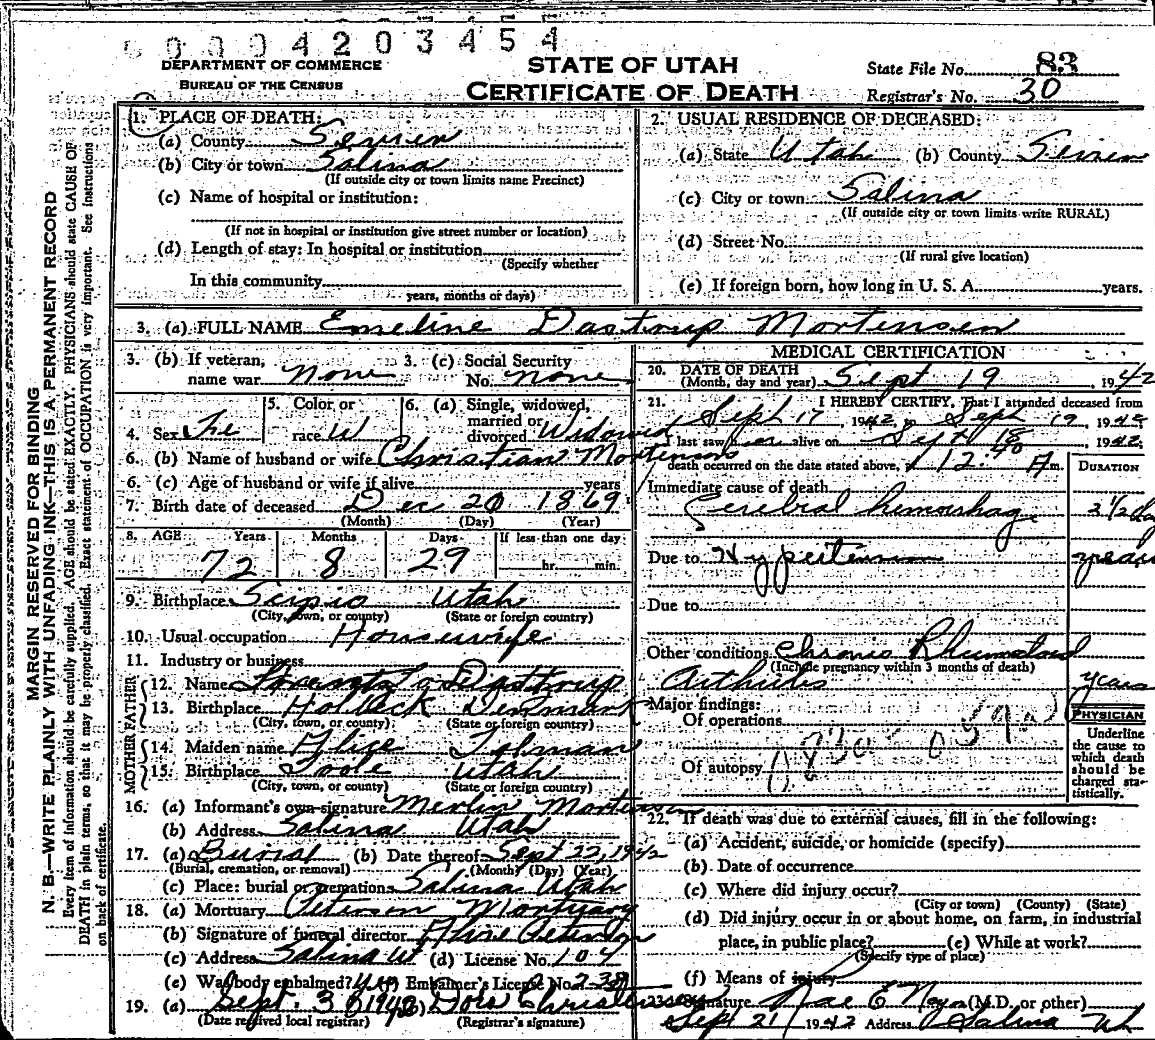 0004203454
DEPARTMENT OF COMMERCE
BUREAU OF THE CENSUS
STATE OF UTAH
CERTIFICATE OF DEATH
State File No. 83
Registrar's No. 30
MARGIN RESERVED FOR BINDING
N. B.—WRITE PLAINLY WITH UNFADING INK—THIS IS A PERMANENT RECORD
Every item of information should be carefully supplied. AGE should be stated EXACTLY. PHYSICIANS should state CAUSE OF
DEATH in plain terms, so that it may be properly classified. Exact statement of OCCUPATION is very important. See instructions
on back of certificate.
1. PLACE OF DEATH:
(a) County Sevier
(b) City or town Salina
(If outside city or town limits name Precinct)
(c) Name of hospital or institution:
(If not in hospital or institution give street number or location)
(d) Length of stay: In hospital or institution
(Specify whether
In this community
years, months or days)
2. USUAL RESIDENCE OF DECEASED:
(a) State Utah (b) County Sevier
(c) City or town Salina
(If outside city or town limits write RURAL)
(d) Street No.
(If rural give location)
(e) If foreign born, how long in U. S. A. years.
3. (a) FULL NAME Emeline Dastrup Mortensen
3. (b) If veteran, name war None
3. (c) Social Security No. None
4. Sex Fe
5. Color or race W
6. (a) Single, widowed, married or divorced Widowed
6. (b) Name of husband or wife Christian Mortensen
6. (c) Age of husband or wife if alive years
7. Birth date of deceased Dec 20 1869
(Month) (Day) (Year)
8. AGE Years Months Days If less than one day
72 8 29 hr. min.
9. Birthplace Scipio Utah
(City, town, or county) (State or foreign country)
10. Usual occupation Housewife
11. Industry or business
FATHER
12. Name Dastrup
13. Birthplace Holbeck Denmark
(City, town, or county) (State or foreign country)
MOTHER
14. Maiden name
15. Birthplace Toole Utah
(City, town, or county) (State or foreign country)
16. (a) Informant's own signature Merlin Mortensen
(b) Address Salina Utah
17. (a) Burial (b) Date thereof Sept 22, 1942
(Burial, cremation, or removal) (Month) (Day) (Year)
(c) Place: burial or cremation Salina Utah
18. (a) Mortuary Peterson Mortuary
(b) Signature of funeral director Peterson
(c) Address Salina Ut (d) License No. 107
(e) Was body embalmed? Yes (f) Embalmer's License No. 238
19. (a) Sept. 30 1942 (b) Dors Christensen
(Date received local registrar) (Registrar's signature)
MEDICAL CERTIFICATION
20. DATE OF DEATH
(Month, day and year) Sept 19, 1942
21. I HEREBY CERTIFY, That I attended deceased from
Sept 17, 1942, to Sept 19, 1942
I last saw her alive on Sept 18, 1942.
death occurred on the date stated above, at 12:40 A m.
DURATION
Immediate cause of death
Cerebral hemorrhage 2 1/2 day
Due to Hypertension years
Due to
Other conditions Chronic Rheumatoid
(Include pregnancy within 3 months of death)
Arthritis years
Major findings:
Of operations
Of autopsy
PHYSICIAN
Underline
the cause to
which death
should be
charged sta-
tistically.
22. If death was due to external causes, fill in the following:
(a) Accident, suicide, or homicide (specify)
(b) Date of occurrence
(c) Where did injury occur?
(City or town) (County) (State)
(d) Did injury occur in or about home, on farm, in industrial
place, in public place? (e) While at work?
(Specify type of place)
(f) Means of injury
23. Signature Rae E Noyes (M.D. or other)
Sept 21 1942 Address Salina Ut